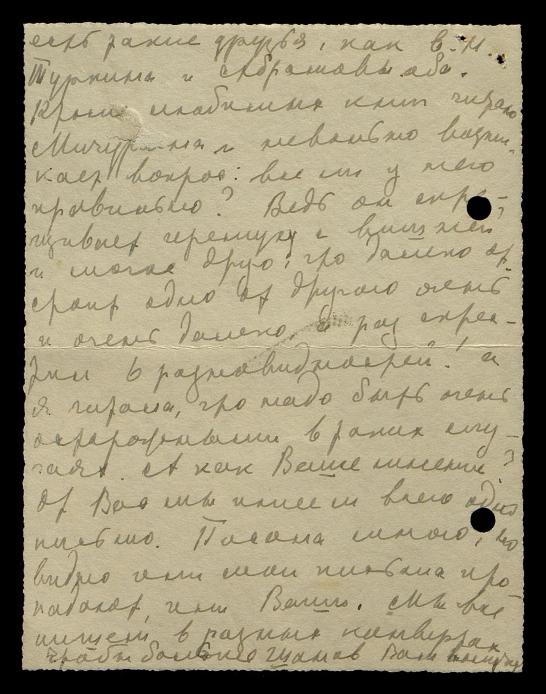 есть такие друзья, как Е. И.
Тупкины и
Кроме любимых книг читаю
Мичурина и невольно возни-
кает вопрос: все ли у него
правильно? Ведь он скре-
щивает черемуху с вишней
и многое друго, что далеко от-
стоит одно от другого очень
и очень далеко, а раз скрес-
тил 6 разновидностей! а
я читала, что надо быть очень
осторожными в таких слу-
чаях. А как Ваше мнение?
От Вас мы имеем всего одно
письмо. Писала много, но
видно или мои письма про
падают, или Ваши. Мы все
пишем в разных конвертах
чтобы больше шансов Вам